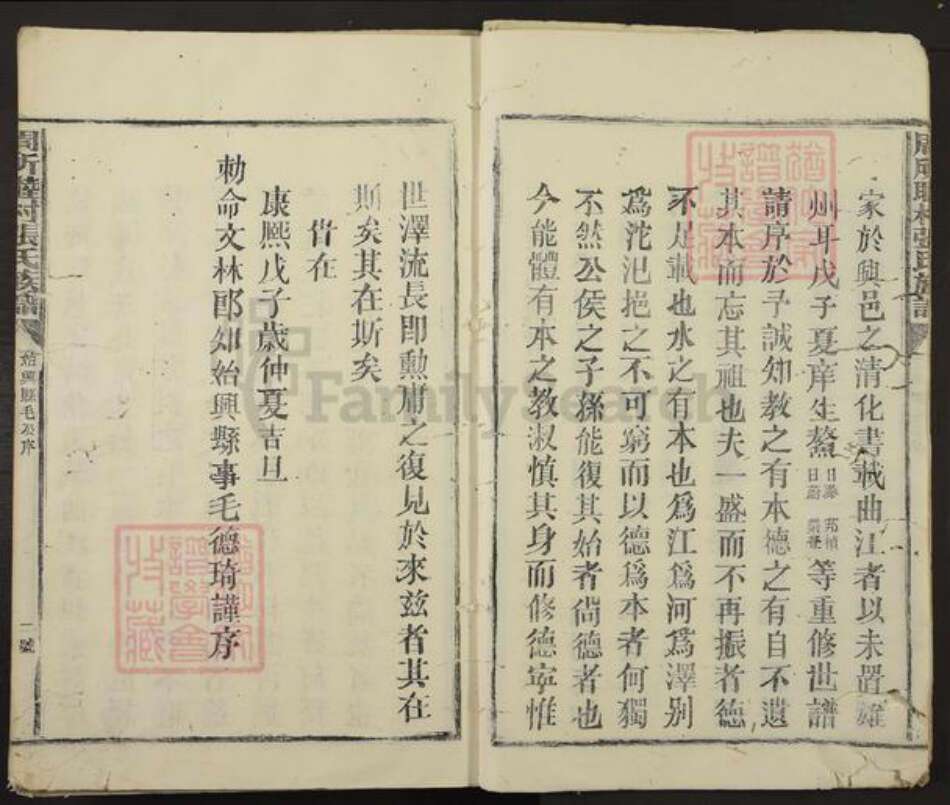 家於興邑之清化書載曲江者以未置雄
州耳戊子夏庠生鰲等重修世譜
請序於予誠知教之有本德之有自不遺
其本而忘其祖也夫一盛而不再振者德
不足載也水之有本也爲江爲河爲澤别
爲沱汜挹之不可窮而以德爲本者何獨
不然公侯之子孫能復其始者尚德者也
今能體有本之教淑慎其身而修德寧惟
世澤流長即勳庸之復見於來兹者其在
斯矣其在斯矣
旹在
康熙戊子歲仲夏吉旦
勅命文林郎知始興縣事毛德琦謹序
張氏族譜
始興縣毛公序
一號
FamilySearch